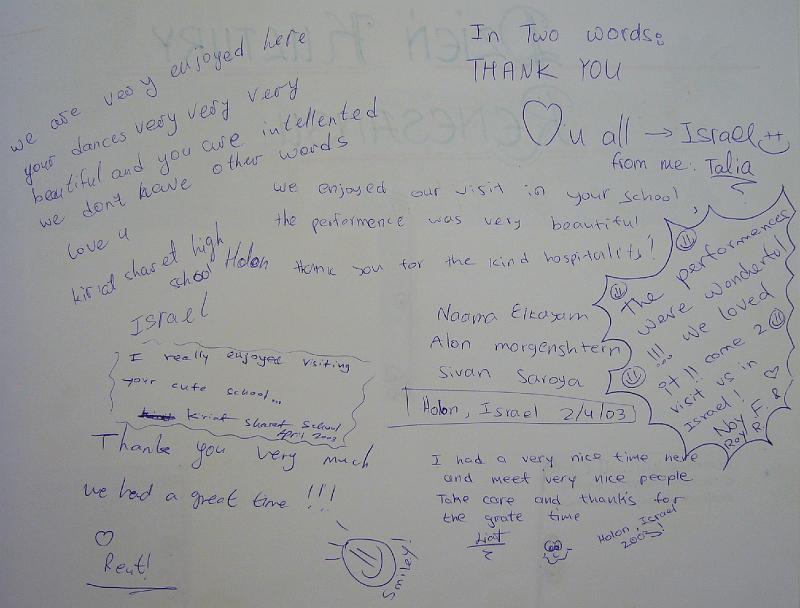 DZIEŃ KULTURY
we are very enjoyed here
your dances very very very
beautiful and you are intellented
we don't have other words
love u
kiriat sharet high
school Holon
Israel
In Two words:
THANK YOU
♡ u all → Israel
from me: Talia
we enjoyed our visit in your school,
the performence was very beautiful
thank you for the kind hospitality!
Naama Elkayam
Alon morgenshtern
Sivan Saroya
Holon, Israel 2/4/03
The performences
were wonderful
!!! we loved
it!! come 2
visit us in
Israel! ♡
Noy F. &
Roy R.
I really enjoyed visiting
your cute school...
Kiriat sharet school
April 2003
Thank you very much
we had a great time !!!
♡
Reut!
Smiley!
I had a very nice time here
and meet very nice people
Take care and thanks for
the grate time
Liat
Holon, Israel
2003!